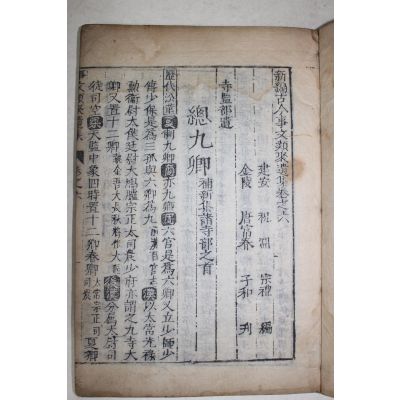 新編古今事文類聚遺集卷之六
建安 祝淵 宗禮 編
金陵 唐富春 子和 刊
寺監部遺
總九卿 補新集諸寺部之首
歷代沿革 夏制九卿 商亦九卿 周六官是爲六卿又立少師少
傅少保是爲三孤與六卿爲九 漢以太常光祿
勳衛尉太僕廷尉大鴻臚宗正大司農少府亦謂之九寺大
卿又置十二卿 後漢分屬大尉司
徒司空 梁天監中象四時置十二卿春卿 夏卿